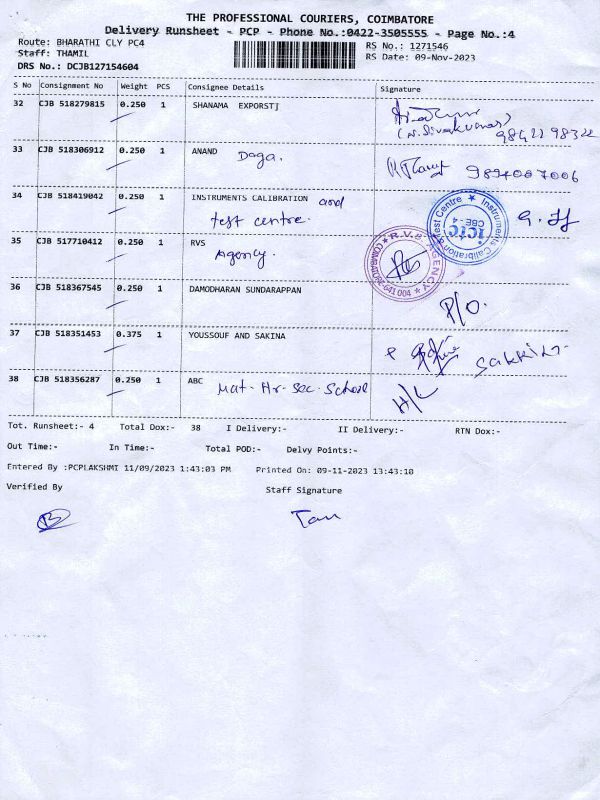 THE PROFESSIONAL COURIERS, COIMBATORE
Delivery Runsheet - PCP - Phone No.:0422-3505555 - Page No.:4
Route: BHARATHI CLY PC4
RS No.: 1271546
Staff: THAMIL
RS Date: 09-Nov-2023
DRS No.: DCJB127154604
S No Consignment No Weight PCS Consignee Details Signature
32 CJB 518279815 0.250 1 SHANAMA EXPORSTJ
(N. Sivakumar) 9842298322
33 CJB 518306912 0.250 1 ANAND Daga.
9894007006
34 CJB 518419042 0.250 1 INSTRUMENTS CALIBRATION and
test centre.
Instruments Calibration & Test Centre
ictc
CBE - 4
35 CJB 517710412 0.250 1 RVS
Agency.
R.V.S. AGENCY
COIMBATORE-641 004
36 CJB 518367545 0.250 1 DAMODHARAN SUNDARAPPAN
P/O.
37 CJB 518351453 0.375 1 YOUSSOUF AND SAKINA
38 CJB 518356287 0.250 1 ABC Mat-Hr-Sec-School
H/L
Tot. Runsheet:- 4 Total Dox:- 38 I Delivery:- II Delivery:- RTN Dox:-
Out Time:- In Time:- Total POD:- Delvy Points:-
Entered By :PCPLAKSHMI 11/09/2023 1:43:03 PM Printed On: 09-11-2023 13:43:10
Verified By Staff Signature